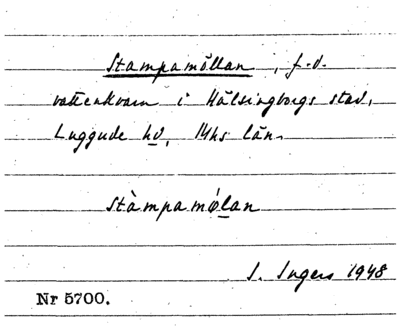 Stampamöllan, f.d.
vattenkvarn i Hälsingborgs stad,
Luggude hd, Mhs län.
stàmpamø̀lan
I. Ingers 1948
Nr 5700.